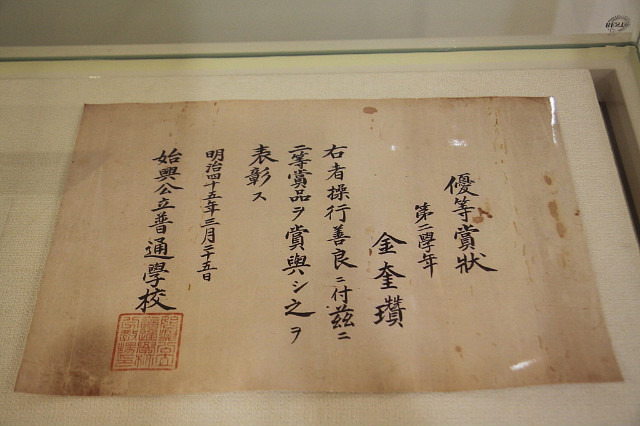 優等賞狀
第二學年
金奎瓚
右者操行善良ニ付茲ニ
二等賞品ヲ賞與シ之ヲ
表彰ス
明治四十五年三月二十五日
始興公立普通學校